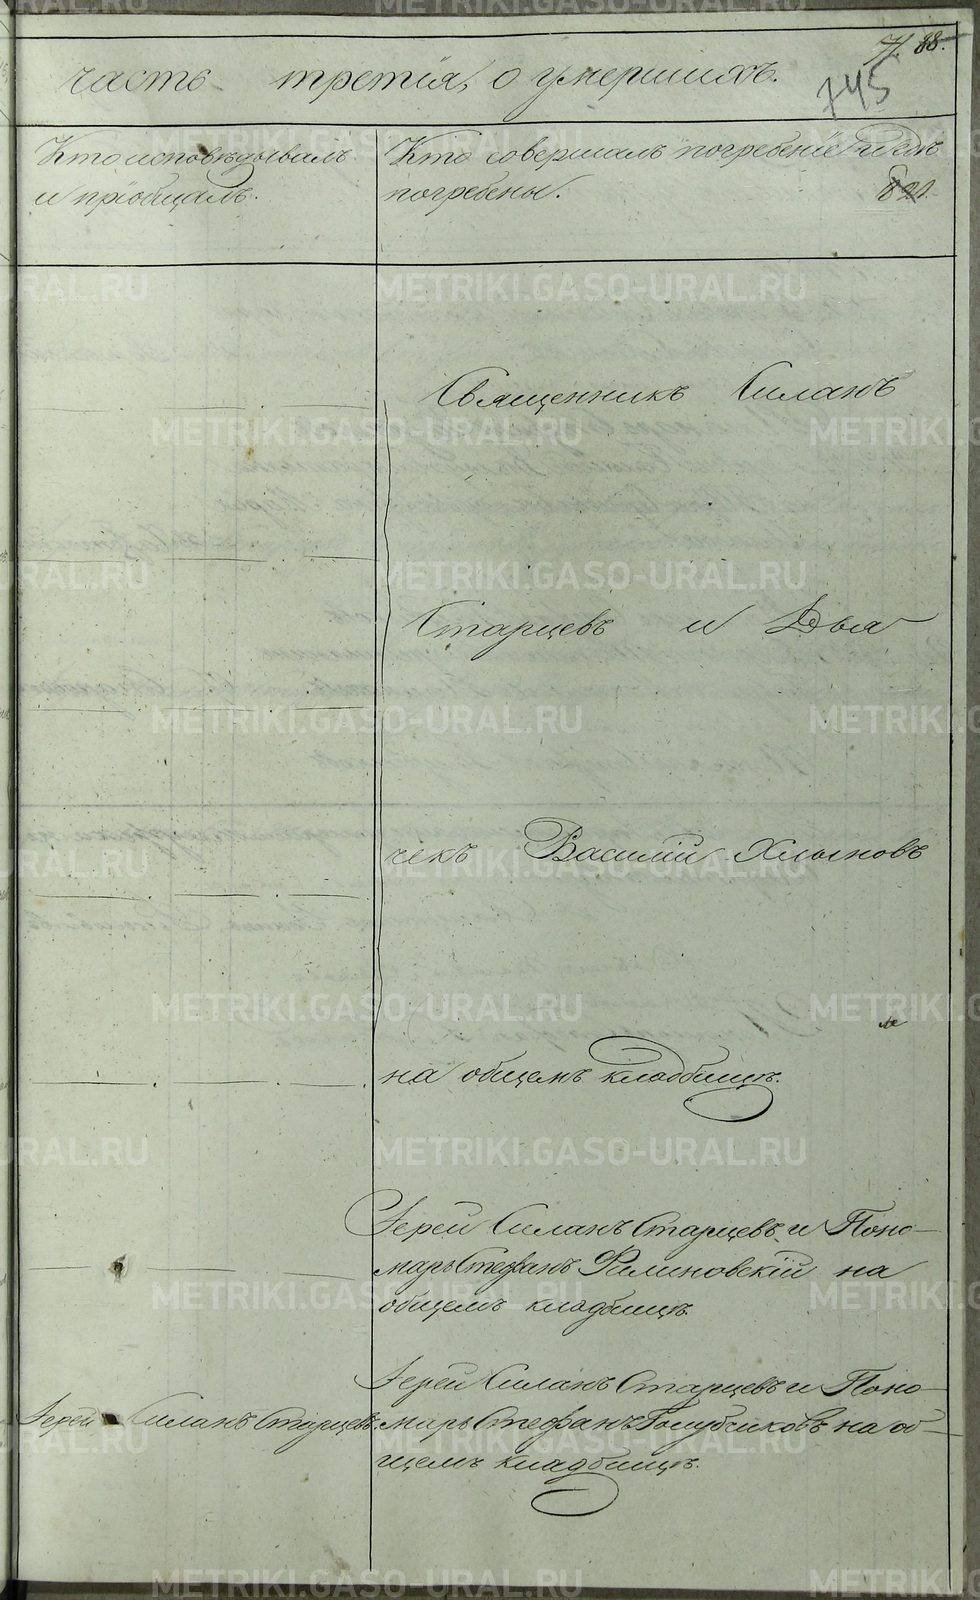 88.
часть третія, о умершихъ.
745
Кто исповѣдывалъ
и пріобщалъ.
Кто совершалъ погребеніе и гдѣ
погребены.
820.
Священникъ Силанъ
Старцевъ и Дья
чекъ Василій Хлыновъ
на общемъ кладбищѣ.
Іерей Силанъ Старцевъ и Поно-
марь Стефанъ на
общемъ кладбищѣ.
Іерей Силанъ Старцевъ и Поно-
Іерей Силанъ Старцевъ.
марь Стефанъ Голубчиковъ на об-
щемъ кладбищѣ.
METRIKI.GASO-URAL.RU